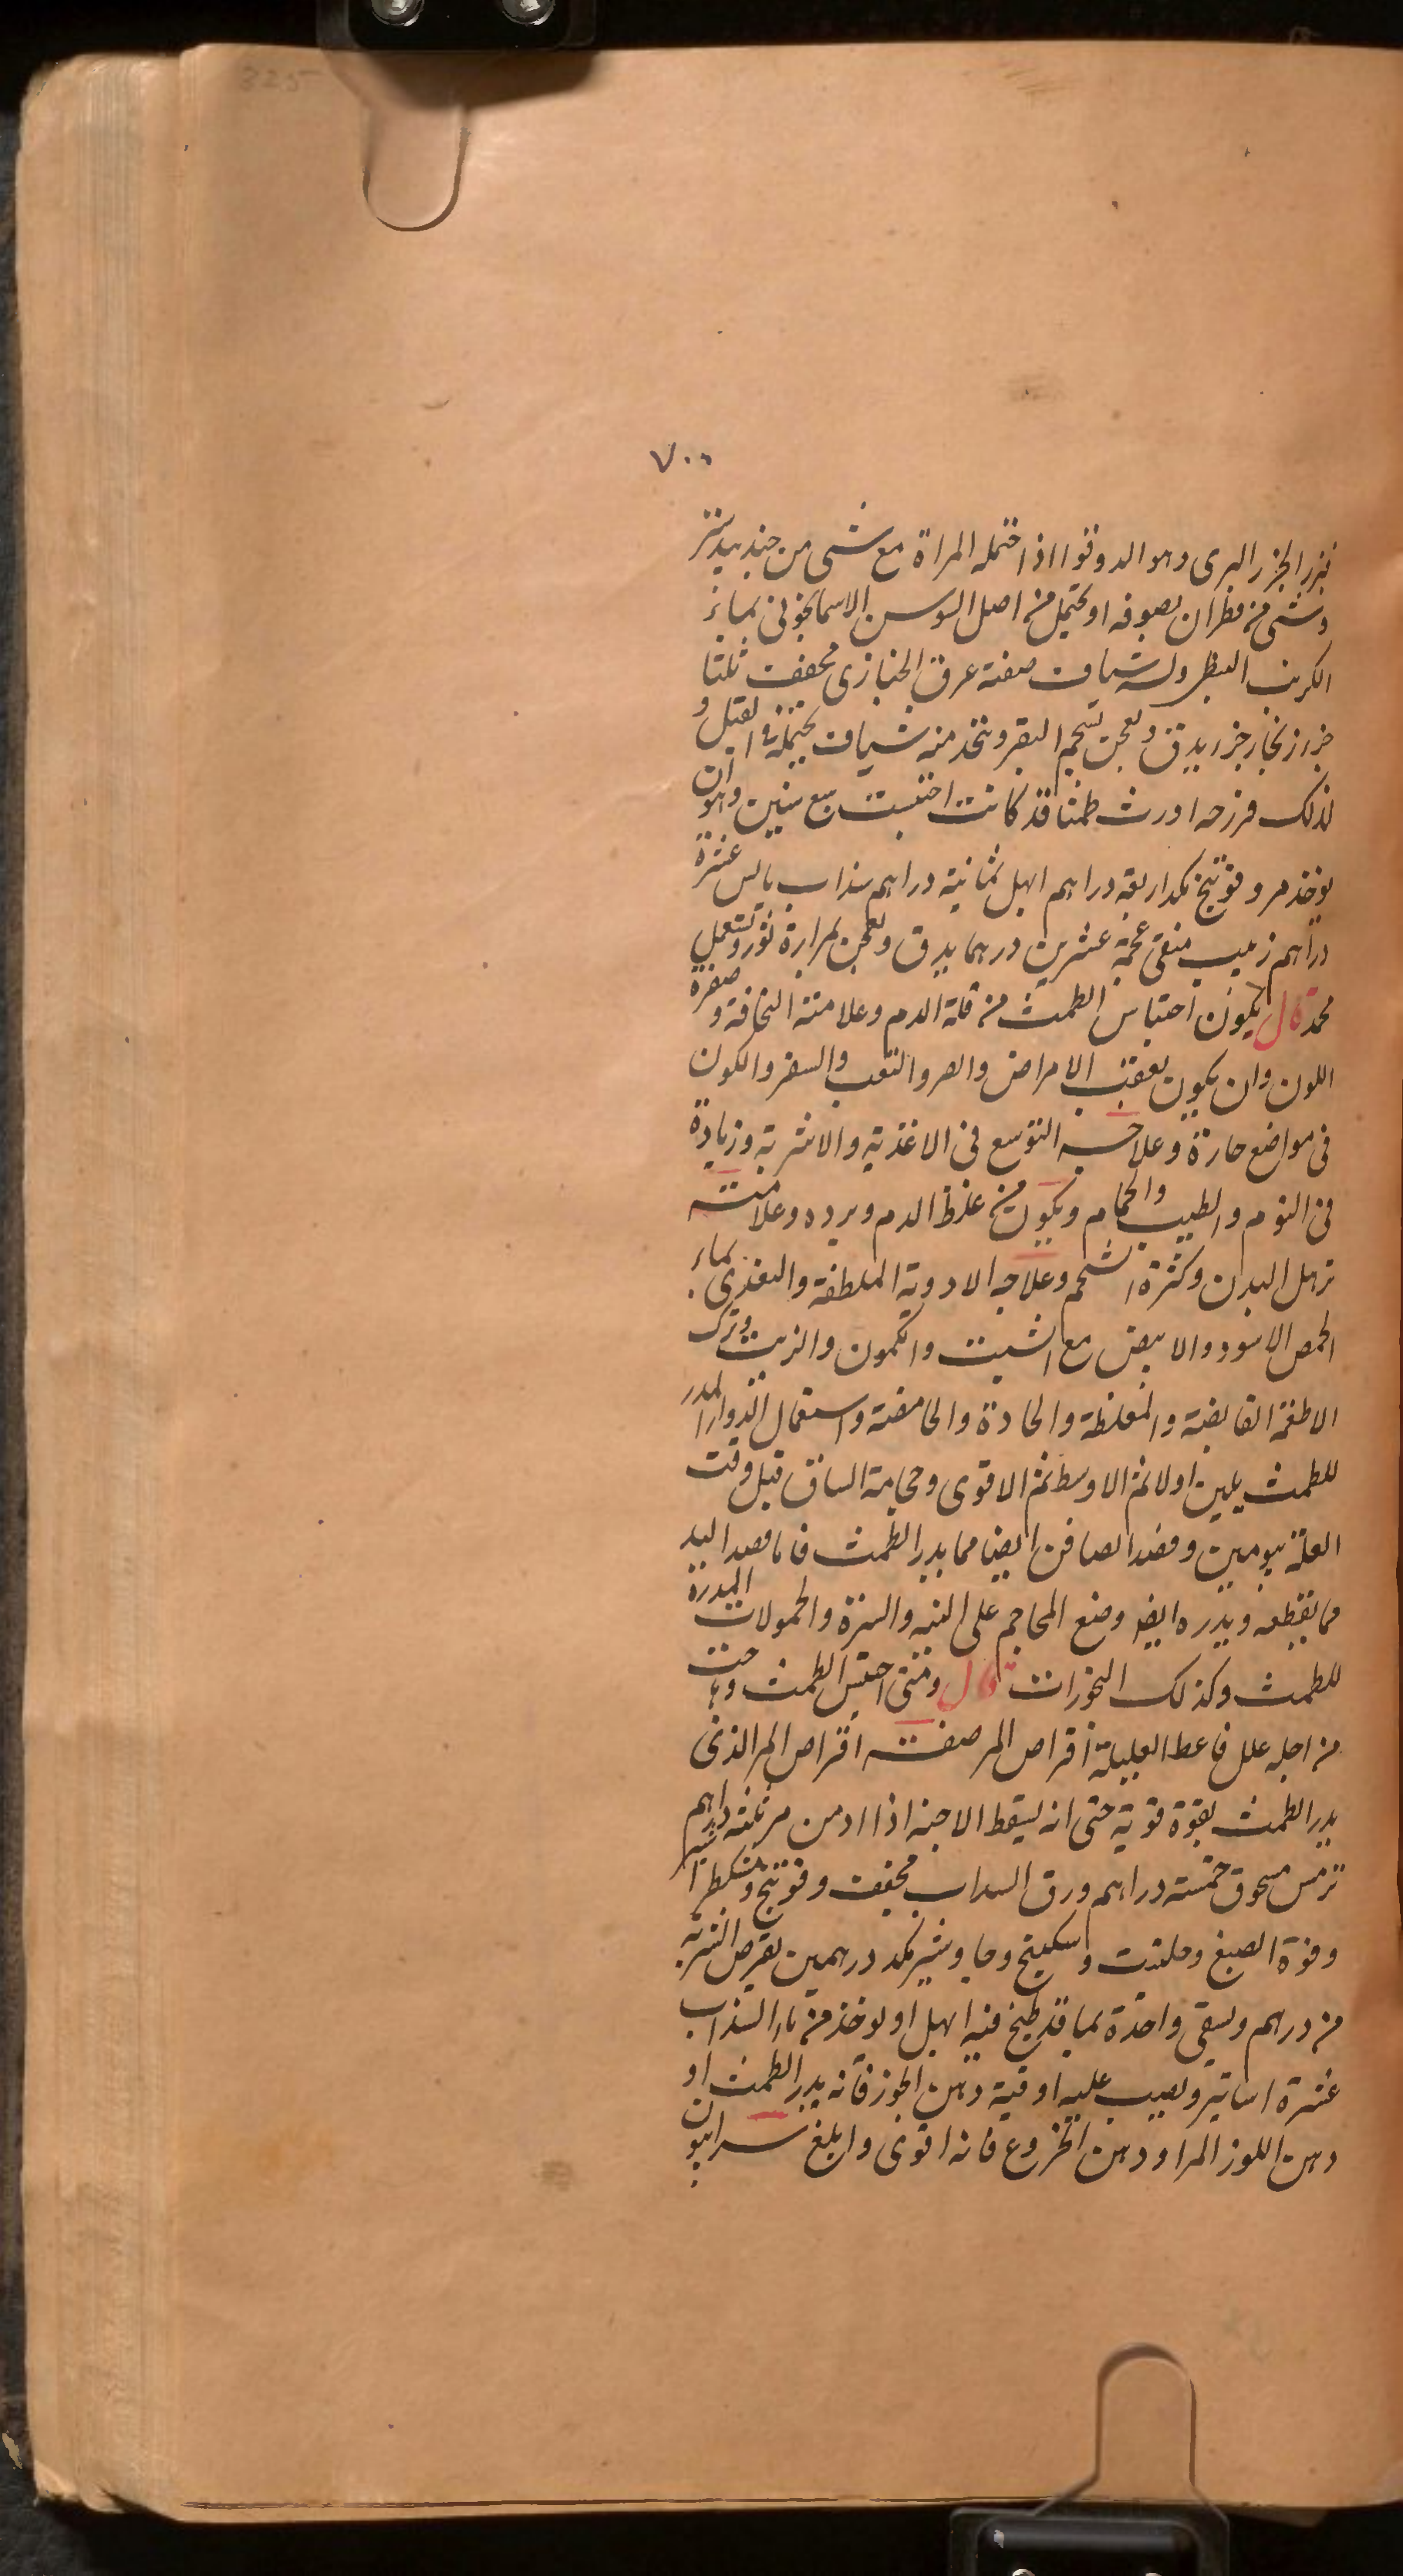 ٧٠٠
بزر الجزر البرى وهو الدوقوا اذا احتمله المراة مع شى من جند بيدستر
وشى من قطران بصوفه او يحتمل من اصل السوسن الاسمانجونى بماء
الكرنب البطى وله شياف صفته عرق الخبازى مجفف ثلثا
جزء زنجار جزء يدق ويعجن بشحم البقر ويتخذ منه شياف يحتمله فى القبل و
لذلك فرزجه اورث طمثا قد كانت احتبست سبع سنين وهو ان
يوخذ مر وفوتنج نكد اربعة دراهم ابهل ثمانية دراهم سذاب يابس عشرة
دراهم زبيب منقى عجمة عشرين درهما يدق ويعجن بمرارة ثور ويستعمل
محمد قال يكون احتباس الطمث من قلة الدم وعلامته النحافة و صفرة
اللون وان يكون بعقب الامراض والصر والتعب والسفر والكون
فى مواضع حارة وعلاجه التوسع فى الاغذية والاشربة وزيادة
فى النوم والطيب والحمام ويكون من غلظ الدم وبرده وعلامته
ترهل البدن وكثرة الشحم وعلاجه الادوية الملطفة والتغذى بماء
الحمص الاسود والابيض مع الشبت والكمون والزيت وترك
الاطعمة القابضة والمغلظة والحادة والحامضة واستعمال الدواء المدر
للطمث بلين اولا ثم الاوسط ثم الاقوى وحجامة الساق قبل وقت
العلة بيومين وفصد الصافن ايضا مما يدر الطمث فاما فصد اليد
مما يقطعه ويدره ايضا وضع المحاجم على الثنه والسرة والحمولات المدرة
للطمث وكذلك البخورات قال ومتى احتبس الطمث وهاجت
من اجله علل فاعط العليلة اقراص المر صفت اقراص المر الذى
يدر الطمث بقوة قوية حتى انه ليسقط الاجنه اذا ادمن مر ثلثة دراهم
ترمس مسحوق خمسة دراهم ورق السداب مجفف وفوتنج ومشكطرامشير
وفوة الصبغ وحلتيت وسكبينج وجاوشير نكد درهمين يقرص الشربة
من درهم ويسقى واحدة بما قد طبخ فيه ابهل او يوخذ من ماء السذاب
عشرة اساتير ويصب عليه اوقية دهن الجوز فانه يدر الطمث او
دهن اللوز المر او دهن الخروع فانه اقوى وابلغ سرابيون